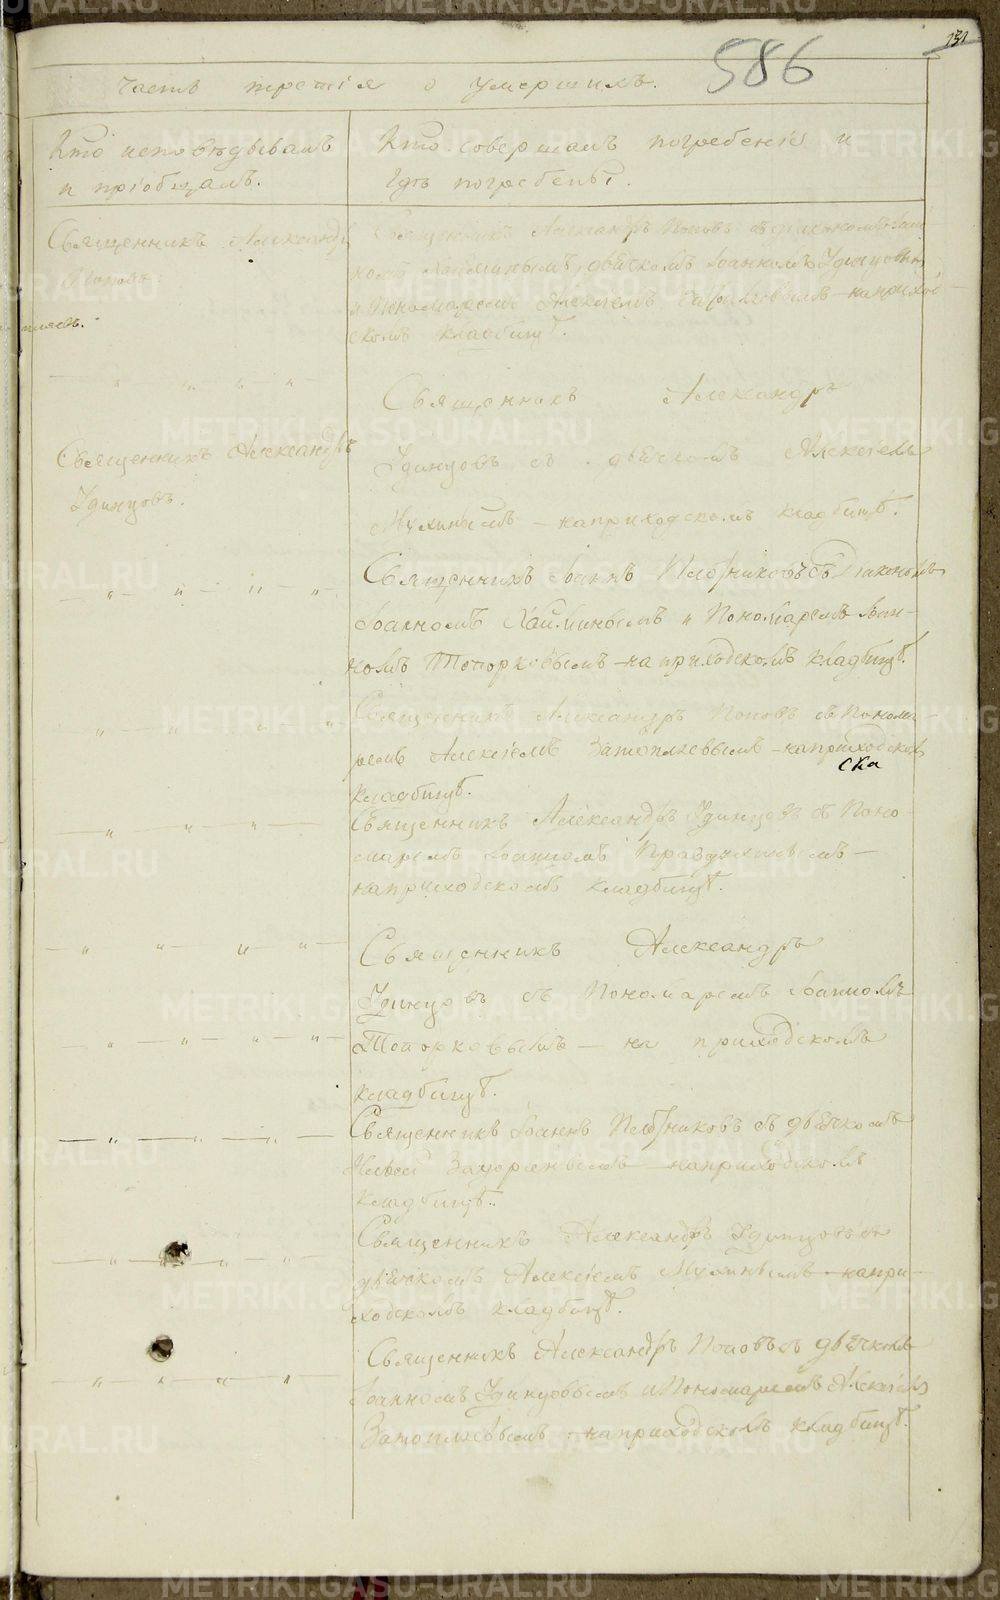 586
Часть третiя о умершихъ.
Кто исповѣдывалъ
и прiобщалъ.
Кто совершалъ погребенiе и
гдѣ погребены.
Священникъ Александръ
Поповъ.
Священникъ Александръ Поповъ съ
дьячкомъ Iоанномъ Удинцовымъ
и Пономаремъ Алексѣемъ на приход-
скомъ кладбищѣ.
Священникъ Александръ
Удинцовъ.
Священникъ Александръ
Удинцовъ съ дьячкомъ Алексѣемъ
Мухинымъ на приходскомъ кладбищѣ.
Священникъ Iоаннъ Плотниковъ съ Дiакономъ
Iоанномъ Хайминымъ и Пономаремъ Iоан-
номъ Топорковымъ на приходскомъ кладбищѣ.
Священникъ Александръ Поповъ съ Понома-
ремъ Алексѣемъ Затопляевымъ на приходском
ска
кладбищѣ.
Священникъ Александръ Удинцовъ съ Поно-
маремъ Iоанномъ
на приходскомъ кладбищѣ.
Священникъ Александръ
Удинцовъ съ Пономаремъ Iоанномъ
Топорковымъ на приходскомъ
кладбищѣ.
Священникъ Iоаннъ Плотниковъ съ дьячкомъ
на приходскомъ
кладбищѣ.
Священникъ Александръ Удинцовъ съ
дьячкомъ Алексѣемъ Мухинымъ на при-
ходскомъ кладбищѣ.
Священникъ Александръ Поповъ съ дьячкомъ
Iоанномъ Удинцовымъ и Пономаремъ Алексѣемъ
Затопляевымъ на приходскомъ кладбищѣ.
METRIKI.GASO-URAL.RU